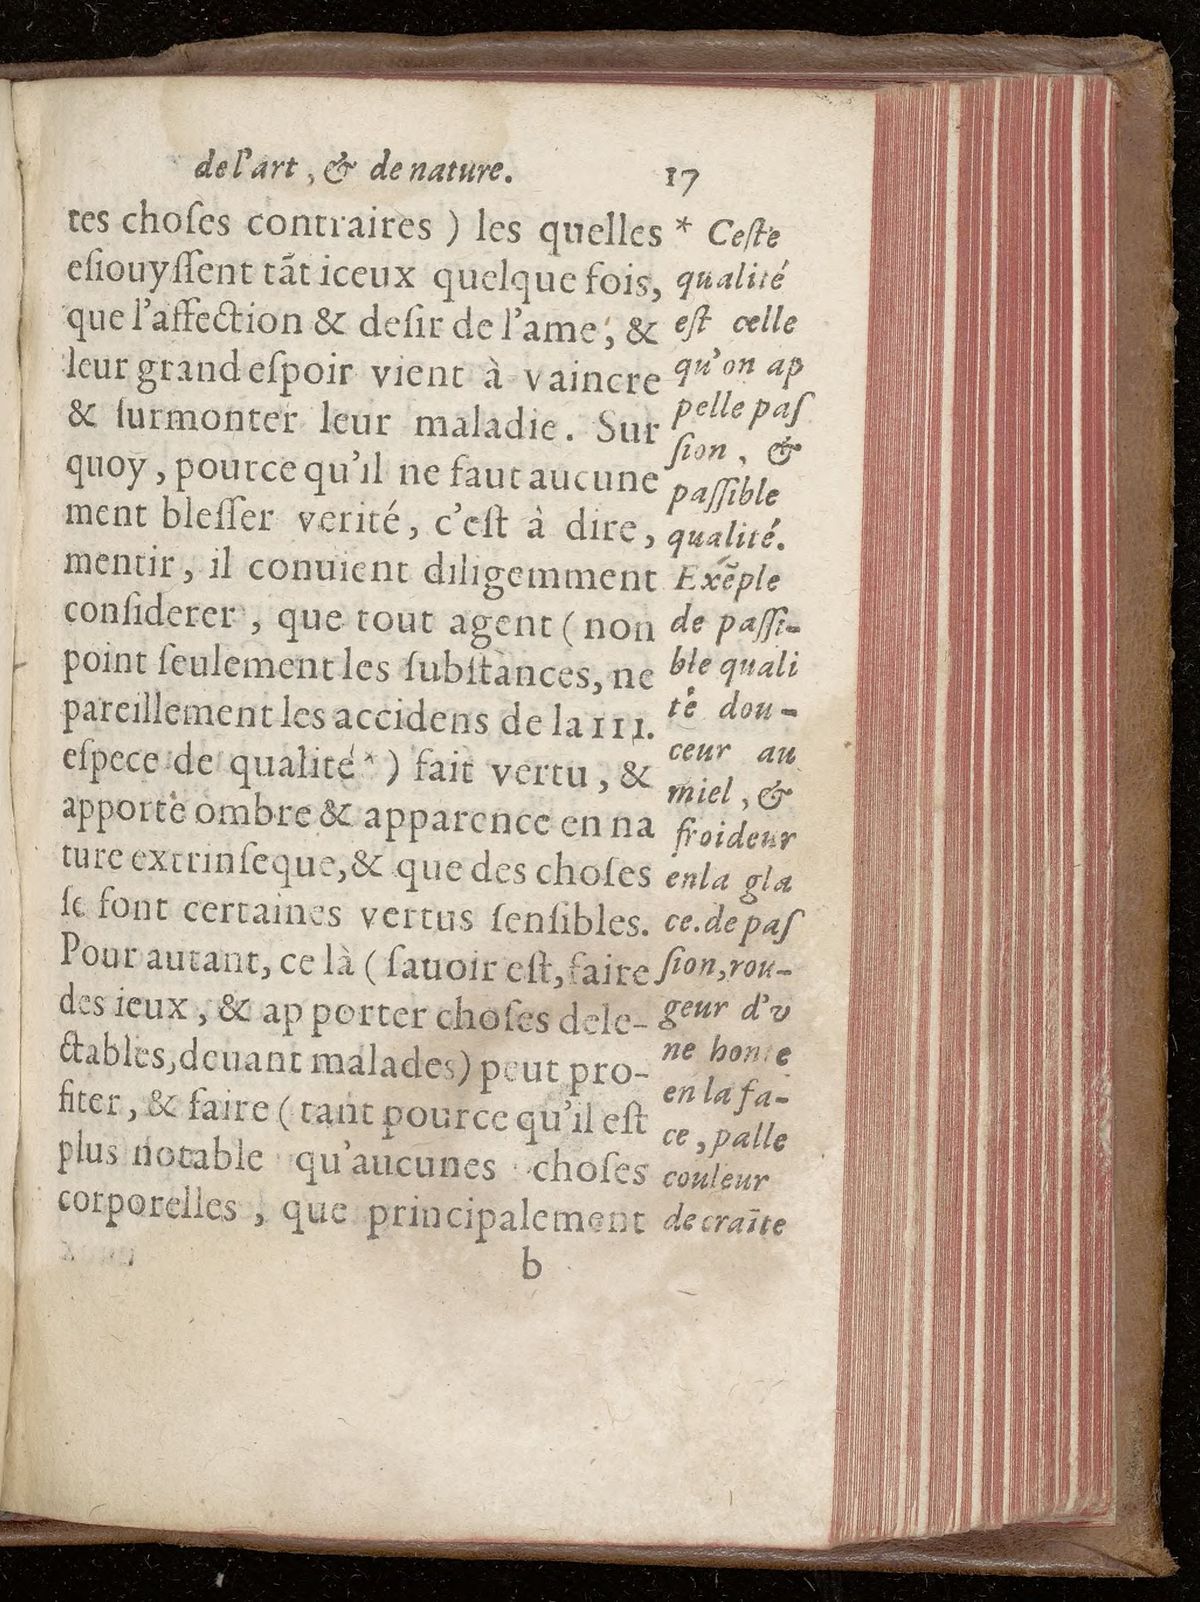 de l'art, & de nature. 17
tes choſes contraires ) les quelles
eſiouyſſent tāt iceux quelque fois,
que l'affection & deſir de l'ame, &
leur grand eſpoir vient à vaincre
& ſurmonter leur maladie. Sur
quoy, pource qu'il ne faut aucune
ment bleſſer verité, c'eſt à dire,
mentir, il conuient diligemment
conſiderer, que tout agent ( non
point ſeulement les ſubſtances, ne
pareillement les accidens de la III.
eſpece de qualité * ) fait vertu, &
apporte ombre & apparence en na
ture extrinſeque, & que des choſes
ſe font certaines vertus ſenſibles.
Pour autant, ce là ( ſauoir eſt, faire
des ieux, & ap porter choſes dele-
ctables, deuant malades) peut pro-
fiter, & faire ( tant pource qu'il eſt
plus notable qu'aucunes choſes
corporelles, que principalement
b
* Ceſte
qualité
eſt celle
qu'on ap
pelle paſ
ſion, &
paſſible
qualité.
Exẽple
de paſſi-
ble quali
té dou-
ceur au
miel, &
froideur
en la gla
ce. de paſ
ſion, rou-
geur d'v
ne honte
en la fa-
ce, palle
couleur
de craĩte